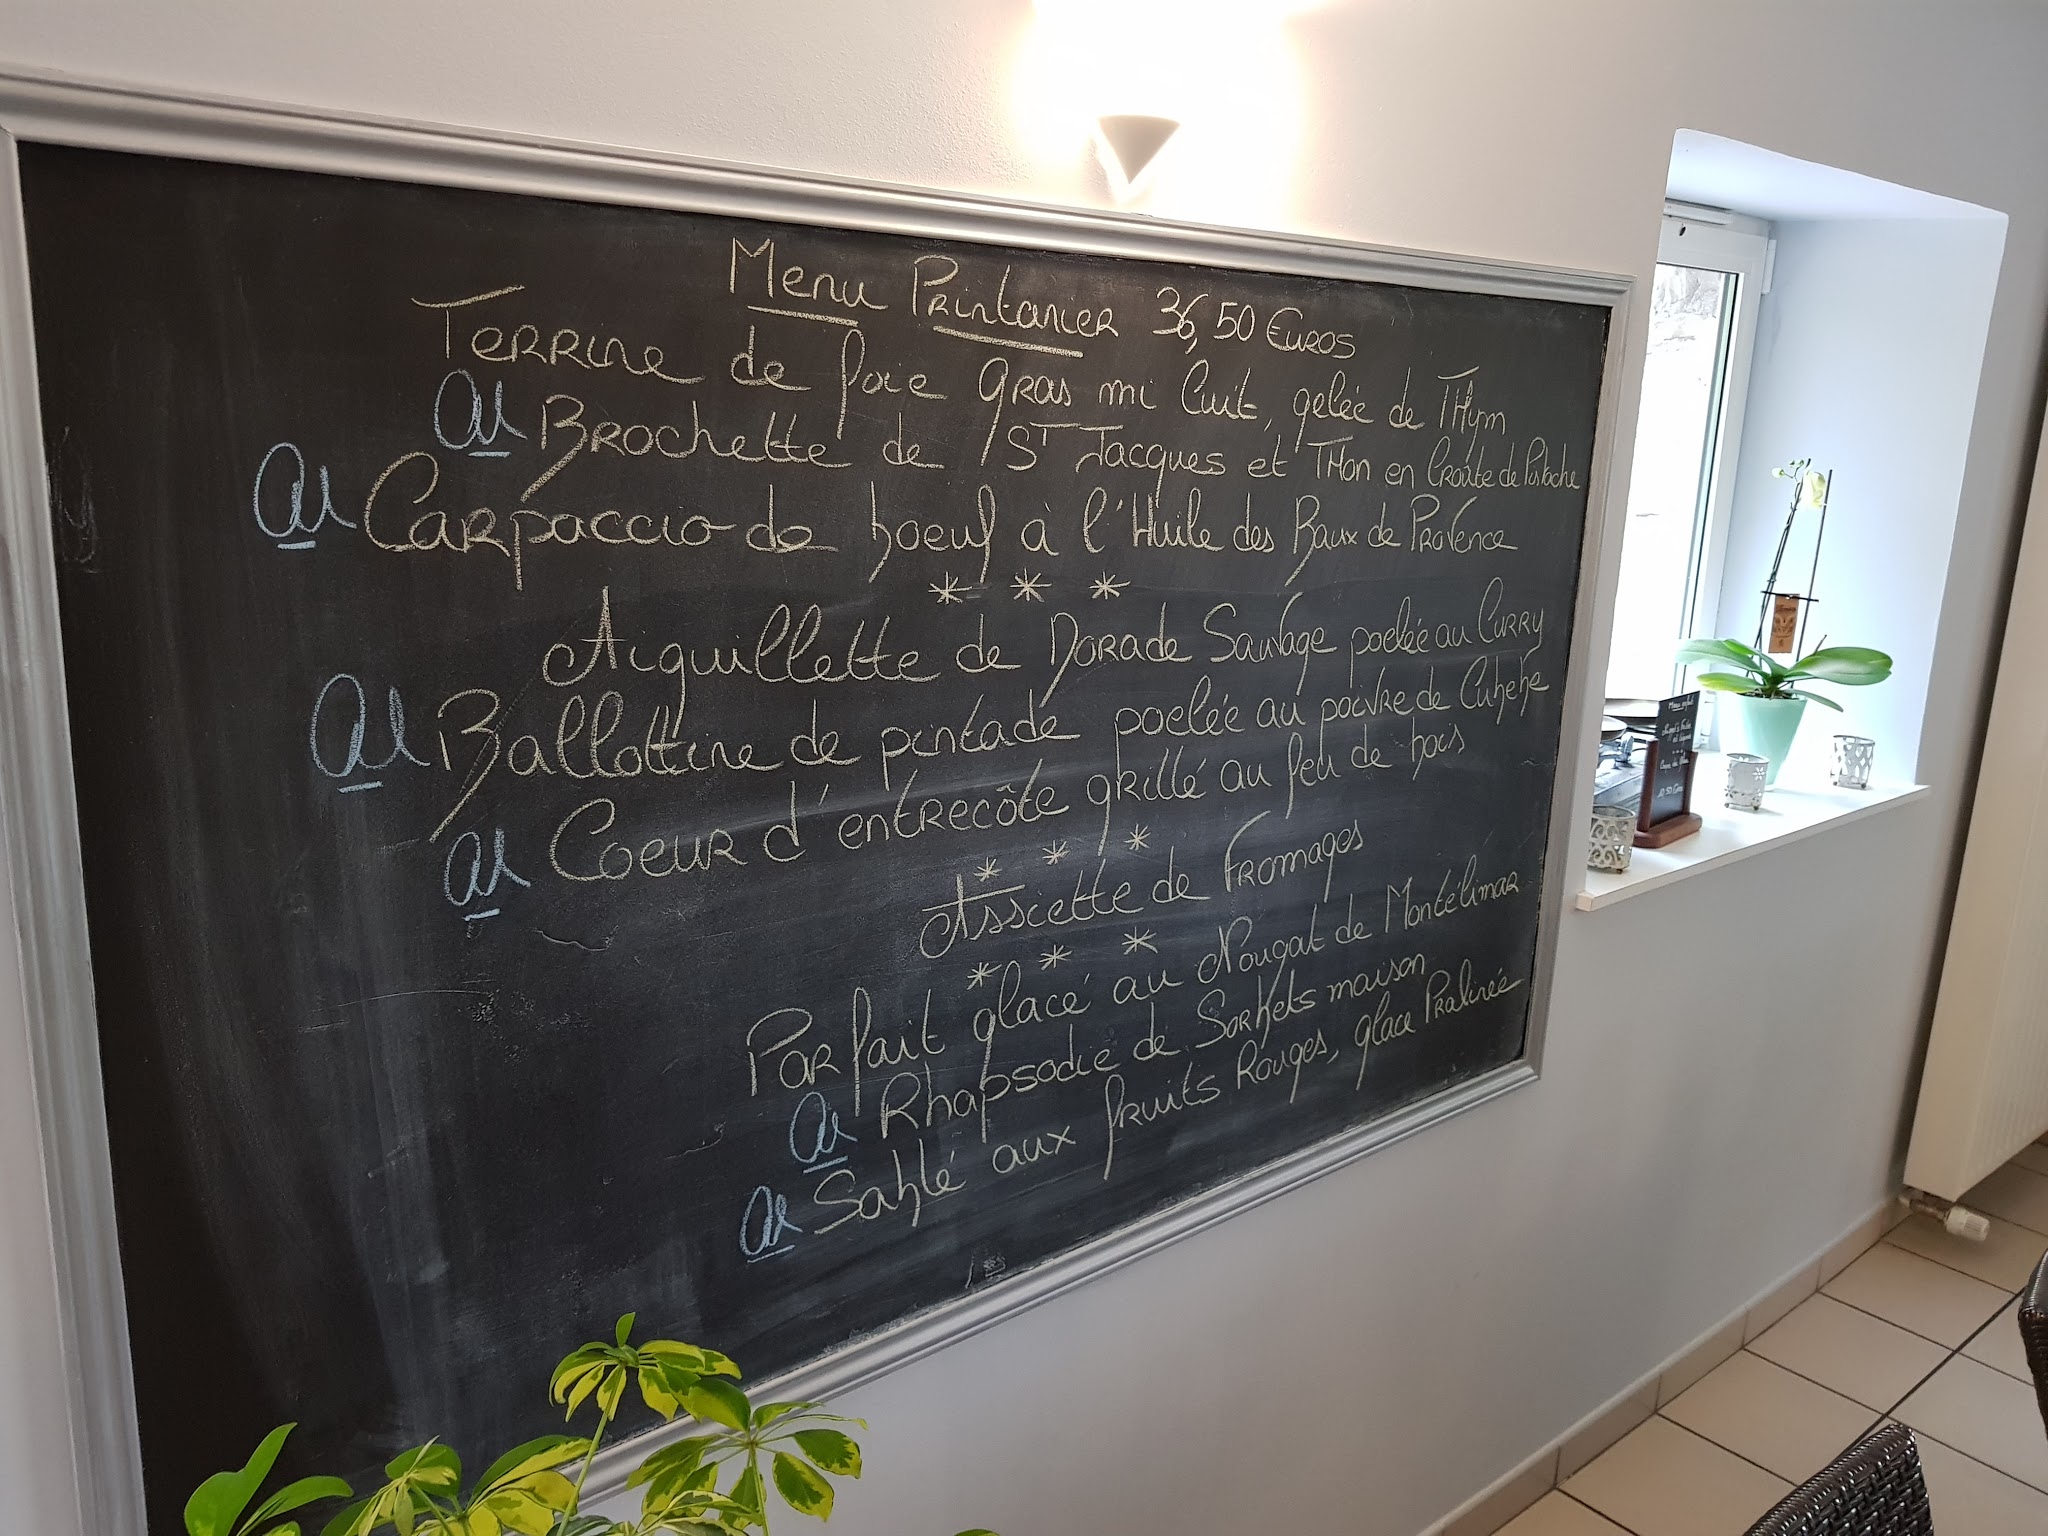 Menu Printanier 36,50 Euros
Terrine de foie gras mi Cuit, gelée de Thym
ou Brochette de St Jacques et Thon en Croûte de Pistache
ou Carpaccio de boeuf à l'Huile des Baux de Provence
* * *
Aiguillette de Dorade Sauvage poelée au Curry
ou Ballottine de pintade poelée au poivre de Cubebe
ou Coeur d'entrecôte grillé au feu de bois
* * *
Assiette de Fromages
* * *
Parfait glacé au Nougat de Montélimar
ou Rhapsodie de Sorbets maison
ou Sablé aux fruits Rouges, glace Pralinée
Menu